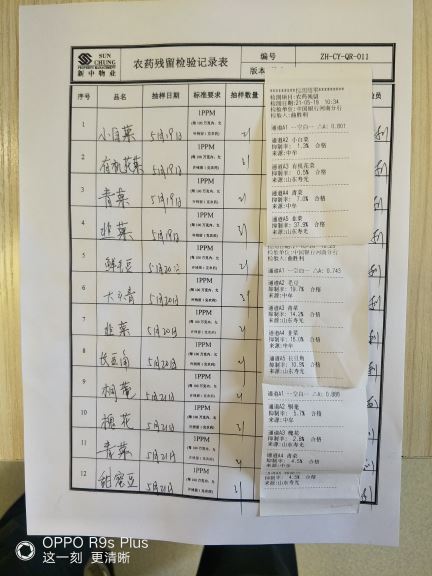 SUN CHUNG
PROPERTY MANAGEMENT
新中物业
农药残留检验记录表
编号
ZH-CY-QR-011
版本
序号 品名 抽样日期 标准要求 抽样数量
1 小白菜 5月19日 1PPM
2 有机花菜 5月19日 1PPM
3 青菜 5月19日 1PPM
4 韭菜 5月19日 1PPM
5 鲜毛豆 5月20日 1PPM
6 大青 5月20日 1PPM
7 韭菜 5月20日 1PPM
8 长豆角 5月20日 1PPM
9 桐蒿 5月21日 1PPM
10 槐花 5月21日 1PPM
11 青菜 5月21日 1PPM
12 甜蜜豆 5月21日 1PPM
检测项目:农药残留
检测日期:21-05-19 10:34
检验单位:中国银行河南分行
检验人:曲胜利
通道A1 --空白-- △A: 0.801
通道A2 小白菜
抑制率: 1.3% 合格
来源:中牟
通道A3 有机花菜
抑制率: 0.5% 合格
来源:中牟
通道A4 青菜
抑制率: 7.0% 合格
来源:中牟
通道A5 韭菜
抑制率: 37.9% 合格
来源:山东寿光
检验单位:中国银行河南分行
检验人:曲胜利
通道A1 --空白-- △A: 0.743
通道A2 毛豆
抑制率: 19.7% 合格
来源:中牟
通道A3 青菜
抑制率: 14.2% 合格
来源:山东寿光
通道A4 韭菜
抑制率: 18.0% 合格
来源:中牟
通道A5 长豆角
抑制率: 10.9% 合格
来源:山东寿光
通道A1 --空白-- △A: 0.886
通道A2 桐蒿
抑制率: 5.7% 合格
来源:中牟
通道A3 槐花
抑制率: 2.8% 合格
来源:山东寿光
通道A4 青菜
抑制率: 4.5% 合格
来源:山东寿光
抑制率: 4.5% 合格
来源:山东寿光
OPPO R9s Plus
这一刻 更清晰